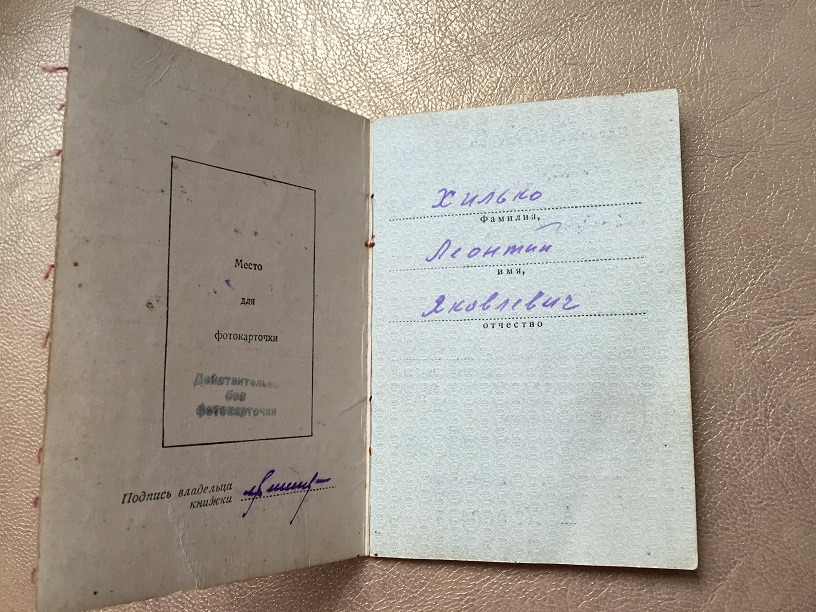 Место
для
фотокарточки
Действительно
без
фотокарточки
Подпись владельца
книжки
Хилько
Фамилия,
Леонтий
имя,
Яковлевич
отчество